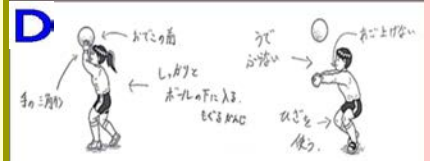 D
おでこの前
手の三角形
しっかりと
ボールの下に入る。
もぐるかんじ
うで
ふらない
あご上げない
ひざを
使う。